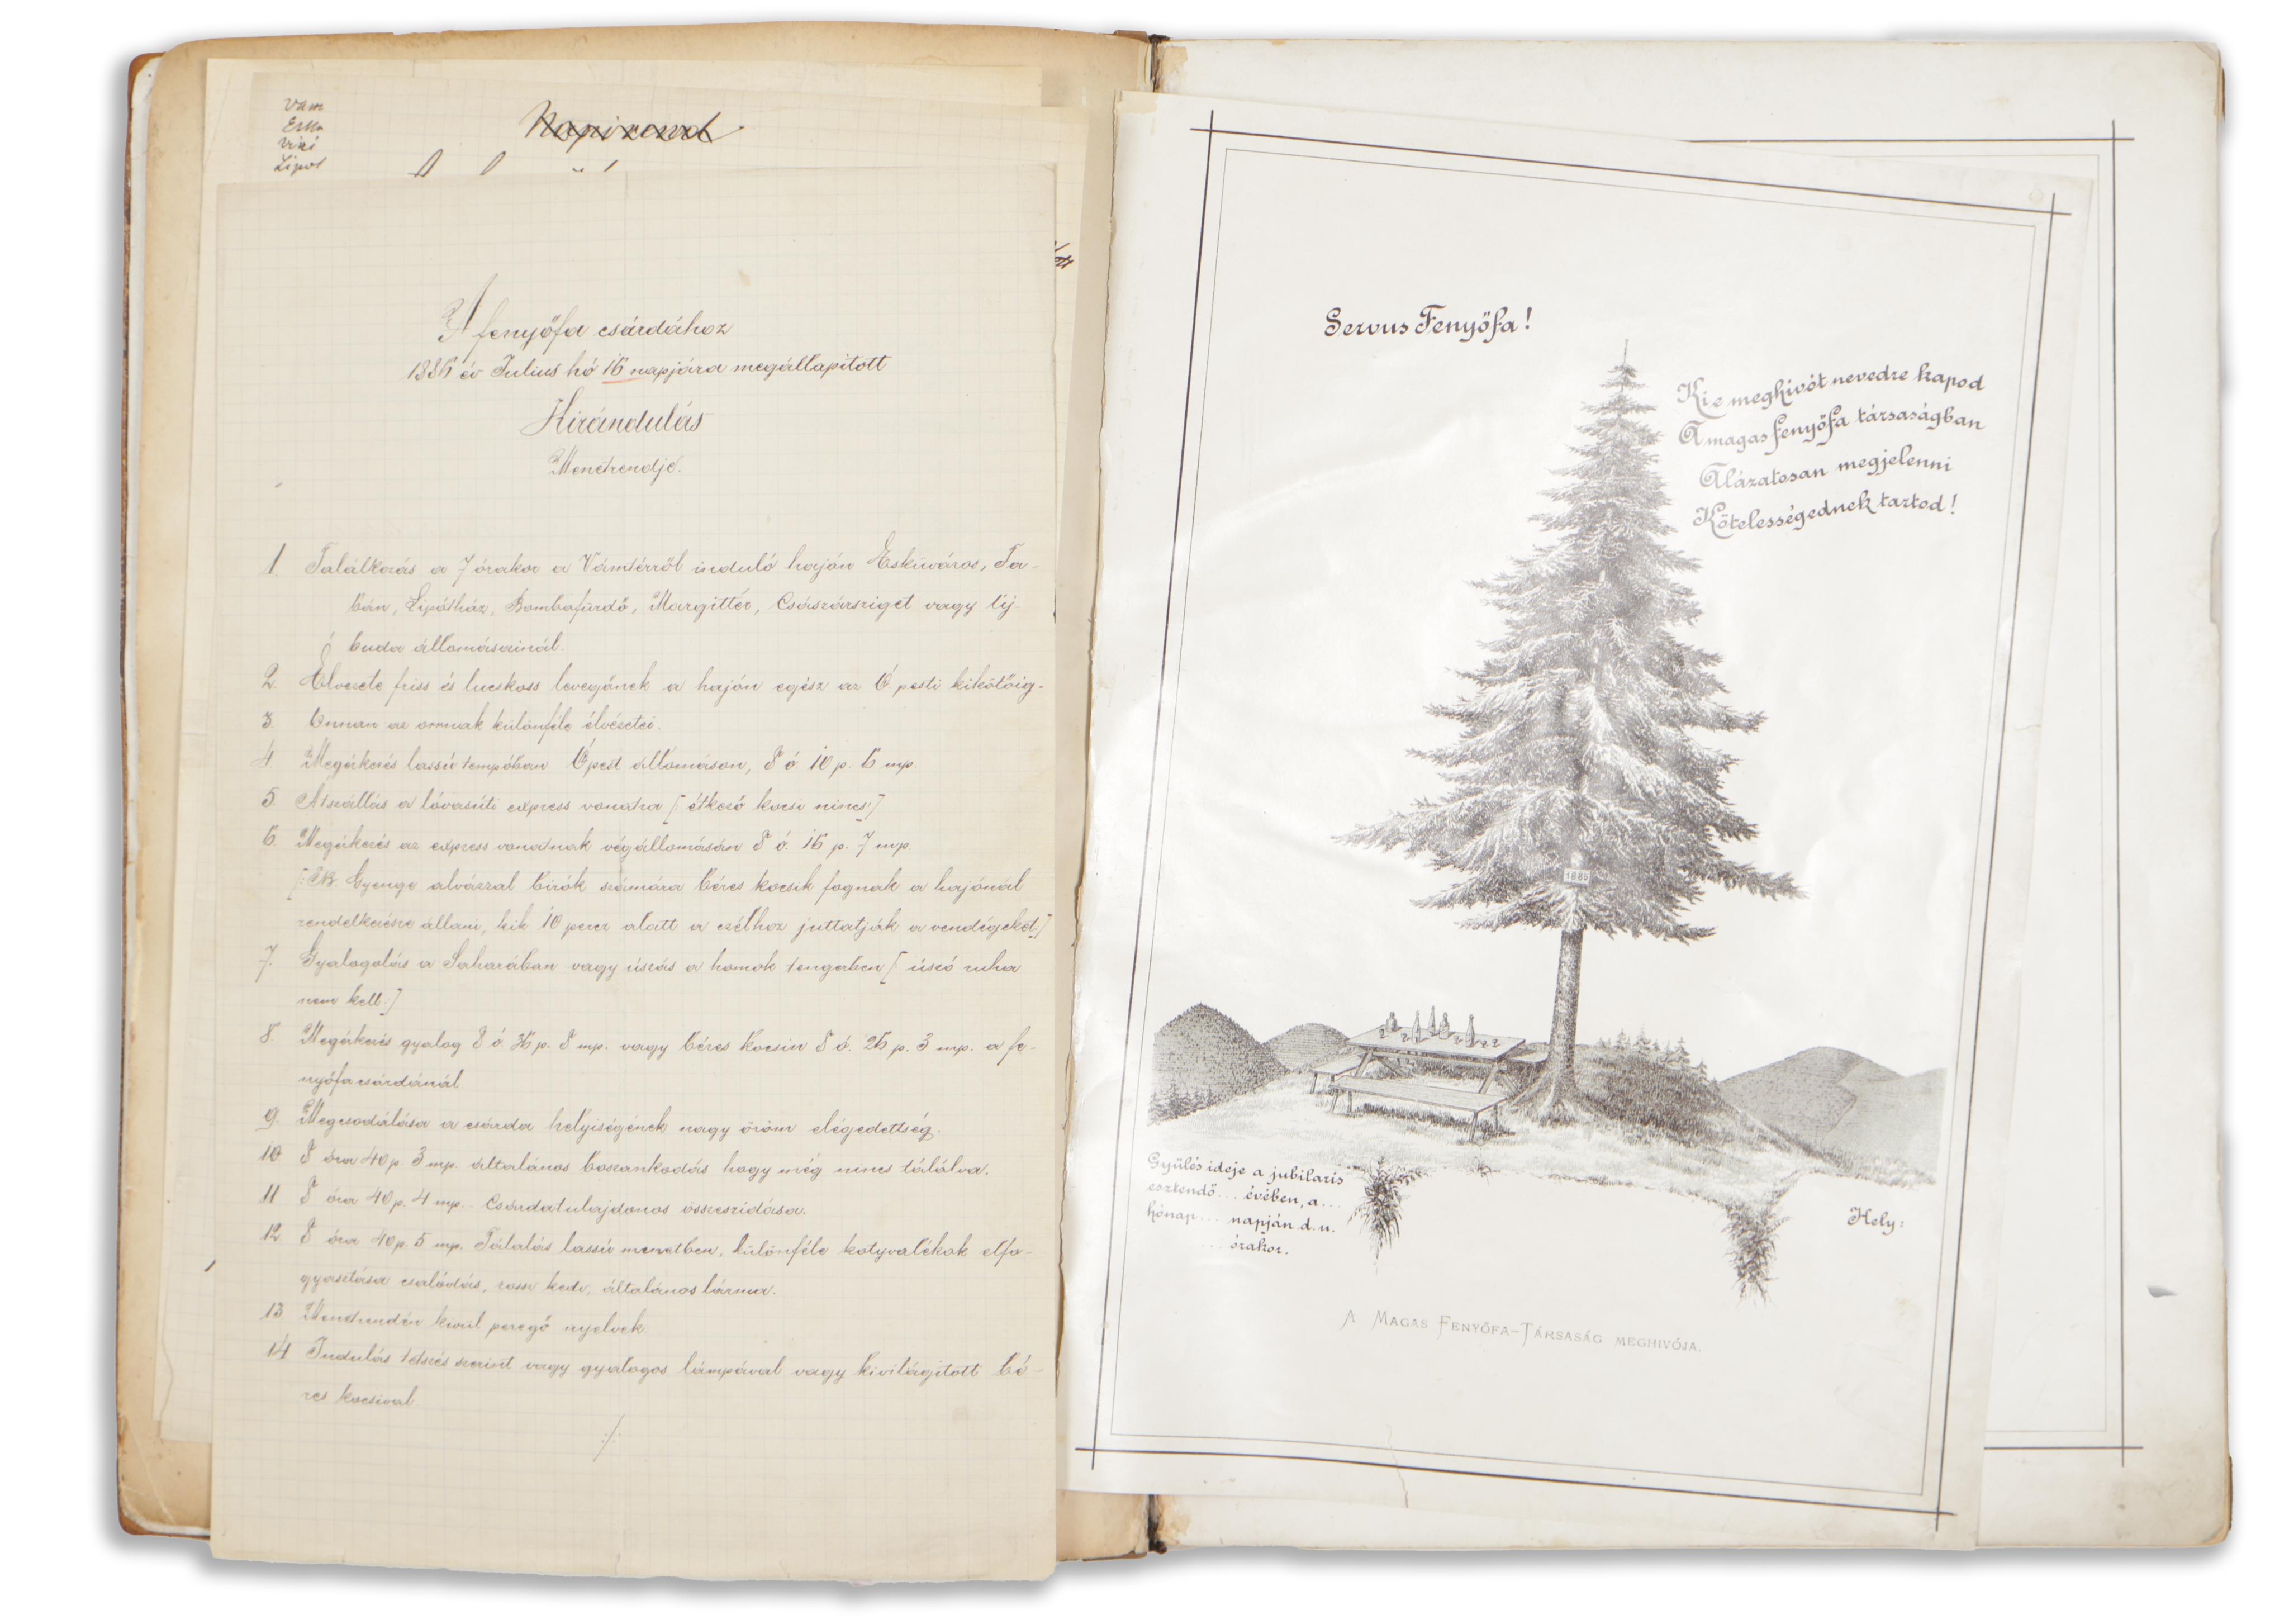 Vám
Eskü
Lipót
Napirend
A fenyőfa csárdához
1886 év Julius hó 16 napjára megállapitott
Hirándulás
Menetrendje.
1. Találkozás a 7 órakor a Vámtérről induló hajón Esküváros, Ta-
bán, Lipótház, Bombafürdő, Margittér, Császársziget vagy Uj-
buda állomásainál.
2. Élvezete friss és lucskoss levegőnek a hajón egész az Ó pesti kikötőig.
3. Onnan az orrnak különféle élvézetei.
4. Megérkezés lassú tempóban Ópest állomáson, 8 ó. 10 p. 6 mp.
5. Átszállás a lóvasúti express vonatra [: étkező kocsi nincs :]
6. Megérkezés az express vonatnak végállomásán 8 ó. 16 p. 7 mp.
[: NB. Gyenge alvázzal birók számára béres kocsik fognak a hajónál
rendelkezésre állani, kik 10 percz alatt a czélhoz juttatják a vendégeket :]
7. Gyalogolás a Saharában vagy úszás a homok tengerben [: úszó ruha
nem kell :]
8. Megérkezés gyalog 8 ó 36 p. 8 mp. vagy béres kocsin 8 ó. 26 p. 3 mp. a fe-
nyőfa csárdánál
9. Megcsodálása a csárda helyiségének nagy öröm elégedettség.
10 8 óra 40 p. 3 mp. általános boszankodás hogy még nincs tálálva.
11 8 óra 40 p. 4 mp. Csárdatulajdonos összeszidása.
12 8 óra 40 p. 5 mp. Tálalás lassú menetben, különféle kotyvalékok elfo-
gyasztása csalódás, rossz kedv, általános lárma.
13. Menetrendén kivül pergő nyelvek
14 Indulás tetszés szerint vagy gyalogos lámpával vagy kivilágitott bé-
res kocsival.
Servus Fenyőfa!
Ki e meghivót nevedre kapod
A magas fenyőfa társaságban
Alázatosan megjelenni
Kötelességednek tartod!
Gyülés ideje a jubilaris
esztendő... évében, a...
hónap... napján d. u.
... órakor.
Hely:
A MAGAS FENYŐFA-TÁRSASÁG MEGHIVÓJA.